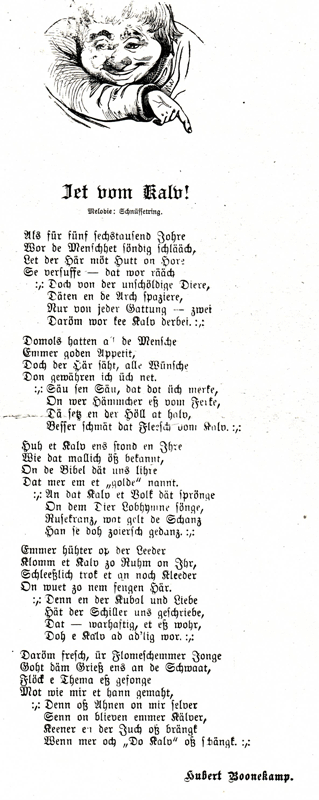 Jet vom Kalv!
Melodie: Schnüsserring.
Als für fünf sechstausend Johre
Wor de Menschhet söndig schlääch,
Let der Här möt Hutt on Hore
Se versuffe — dat wor rääch
:,: Doch von der unschöldige Diere,
Däten en de Arch spaziere,
Nur von jeder Gattung — zwei
Daröm wor kee Kalv derbei. :,:
Domols hatten all de Mensche
Emmer goden Appetit,
Doch der Här säht, alle Wünsche
Don gewähren ich üch net.
:,: Säu sen Säu, dat dot üch merke,
On wer Hämmcher eß vom Ferke,
Dä setz en der Höll at halv,
Besser schmät dat Flersch vom Kalv. :,:
Huh et Kalv ens stond en Ihre
Wie dat mallich öß bekannt,
On de Bibel dät uns lihre
Dat mer em et „golde“ nannt.
:,: An dat Kalv et Volk dät sprönge
On dem Dier Lobhymne sönge,
Nusekranz, wat gelt de Schanz
Han se doh zoiersch gedanz. :,:
Emmer hühter op der Leeder
Klomm et Kalv zo Ruhm on Ihr,
Schleeßlich trok et an noch Kleeder
On wuet zo nem fengen Här.
:,: Denn en der Kubal und Liebe
Hät der Schiller uns geschriebe,
Dat — warhaftig, et eß wohr,
Doh e Kalv ad ad'lig wor. :,:
Daröm fresch, ür Flomeschemmer Jonge
Goht däm Grieß ens an de Schwaat,
Flöck e Thema eß gesonge
Mot wie mir et hann gemaht,
:,: Denn oß Ahnen on mir selver
Senn on blieven emmer Kälver,
Keener en der Juch oß brängk
Wenn mer och „Do Kalv“ oß schängk. :,:
Hubert Boonekamp.